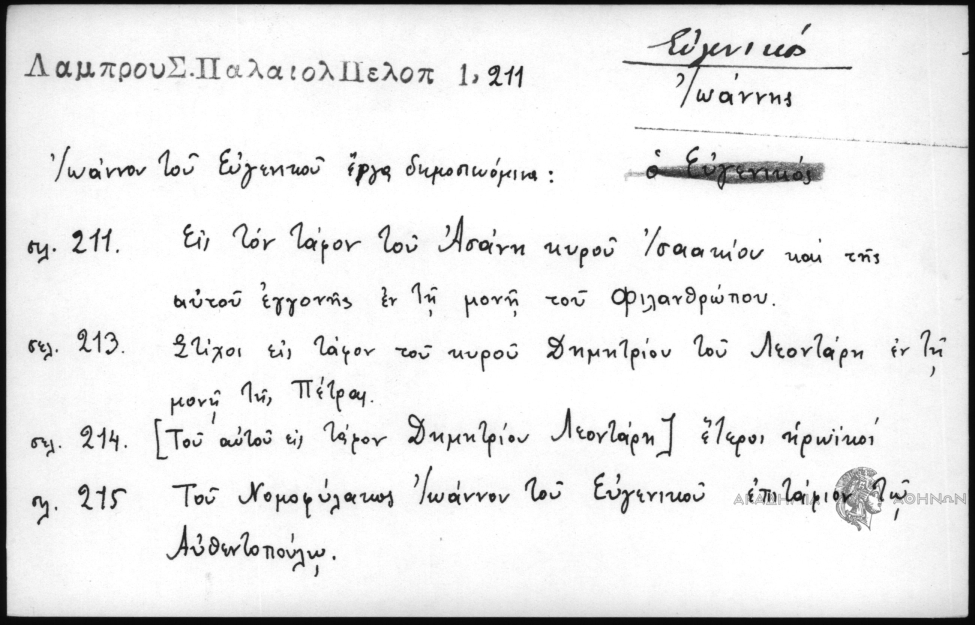 Εὐγενικός
Ἰωάννης
ΛαμπρουΣ.ΠαλαιολΠελοπ 1, 211
Ἰωάννου τοῦ Εὐγενικοῦ ἔργα δημοσιευόμενα :
ὁ Εὐγενικός
σελ. 211. Εἰς τόν τάφον τοῦ Ἀσάνη κυροῦ Ἰσαακίου καί τῆς
αὐτοῦ ἐγγονῆς ἐν τῇ μονῇ τοῦ Φιλανθρώπου.
σελ. 213. Στίχοι εἰς τάφον τοῦ κυροῦ Δημητρίου τοῦ Λεοντάρη ἐν τῇ
μονῇ τῆς Πέτρας.
σελ. 214. [Τοῦ αὐτοῦ εἰς τάφον Δημητρίου Λεοντάρη] ἕτεροι ἡρωϊκοί
σελ. 215 Τοῦ Νομοφύλακος Ἰωάννου τοῦ Εὐγενικοῦ ἐπιτάφιον τῷ
Αὐθεντοπούλῳ.
ΑΚΑΔΗΜΙΑ ΑΘΗΝΩΝ